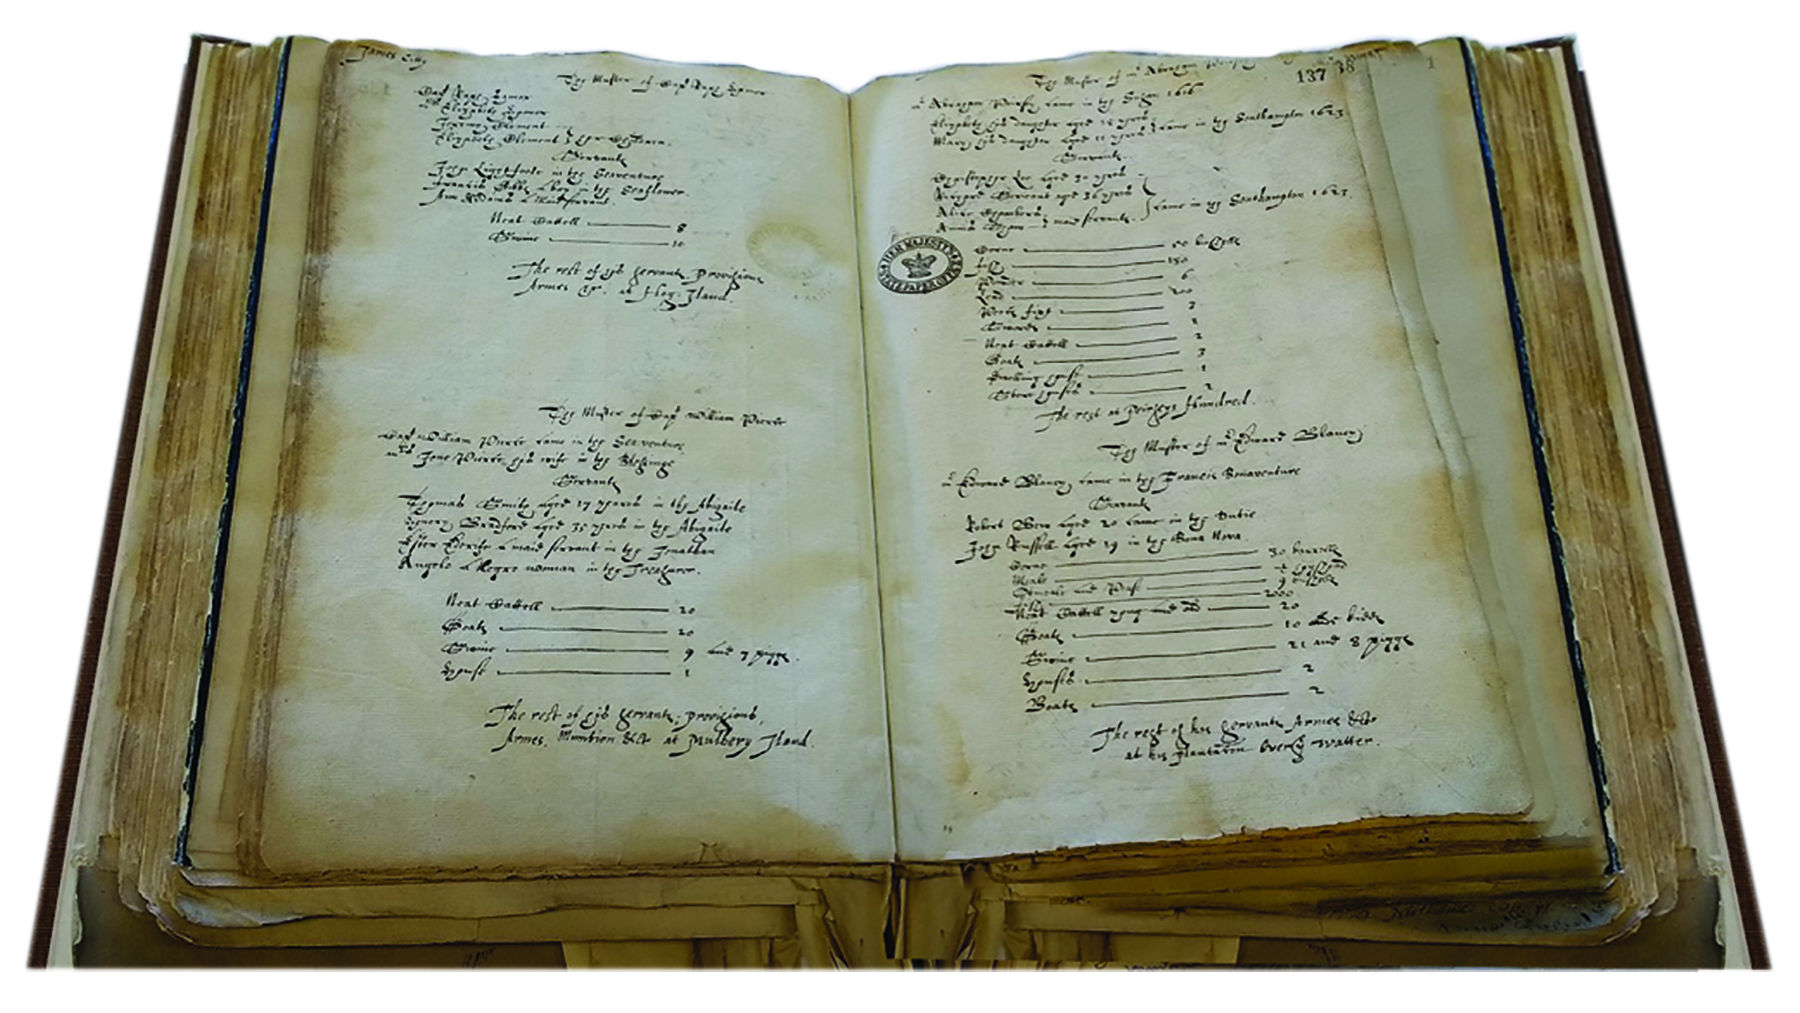 James Citty
The Muster of Capt Raph Hamor
Capt Raph Hamor
mrs Elizabeth Hamor
Jeremy Clement
Elizabeth Clement } her Children
Servants
John Lightfoote in the Seaventure
Francis Gibbs a boy in the Seaflower
Ann Addams a maid servant
Neat Cattell 8
Swine 10
The rest of his servants, Provisions
Armes &c. at Hog-Iland.
The Muster of Capt William Peirce
Capt William Peirce came in the Seaventure
mrs Jone Peirce his wife in the Blessinge
Servants
Thomas Smith aged 17 yeares in the Abigaile
Henery Bradford aged 35 yeares in the Abigaile
Ester Ederife a maid servant in the Jonathan
Angelo a Negro woman in the Treasurer.
Neat Cattell 20
Goats 20
Swine 9 and 7 piggs.
House 1
The rest of his servants, provisions,
Armes, Munition &c at Mulbery Iland.
The Muster of mr Abraham Peirsey
137 38
1
mr Abraham Peirsey came in the Susan 1616
Elizabeth his daughter aged 15 yeares
Mary his daughter aged 11 yeares } came in the Southampton 1623
Servants.
Christopher Lee aged 30 yeares
Richard Serieant aged 36 yeares
Alice Chambers
Annis Shaw } maid servants } came in the Southampton 1623.
HER MAJESTY'S STATE PAPER OFFICE
Corne
Fish
Powder 6
Lead 200
Swords
Neat Cattell 2
Goats 3
Dwelling house 1
Store houses 2
The rest at Peirseys Hundred.
The Muster of mr Edward Blaney
mr Edward Blaney came in the Francis Bonaventure
Servants
Robert Bew aged 20 came in the Dutie
John Russell aged 19 in the Bona Nova.
Corne 30 barrells
Meale
Oatmeale and Pease
Fish 2000
Neat Cattell yong and old 20
Goats 10 & kidds
Swine 21 and 8 piggs
Houses 2
Boats 2
The rest of his servants Armes &c
at his Plantation over ye Watter.